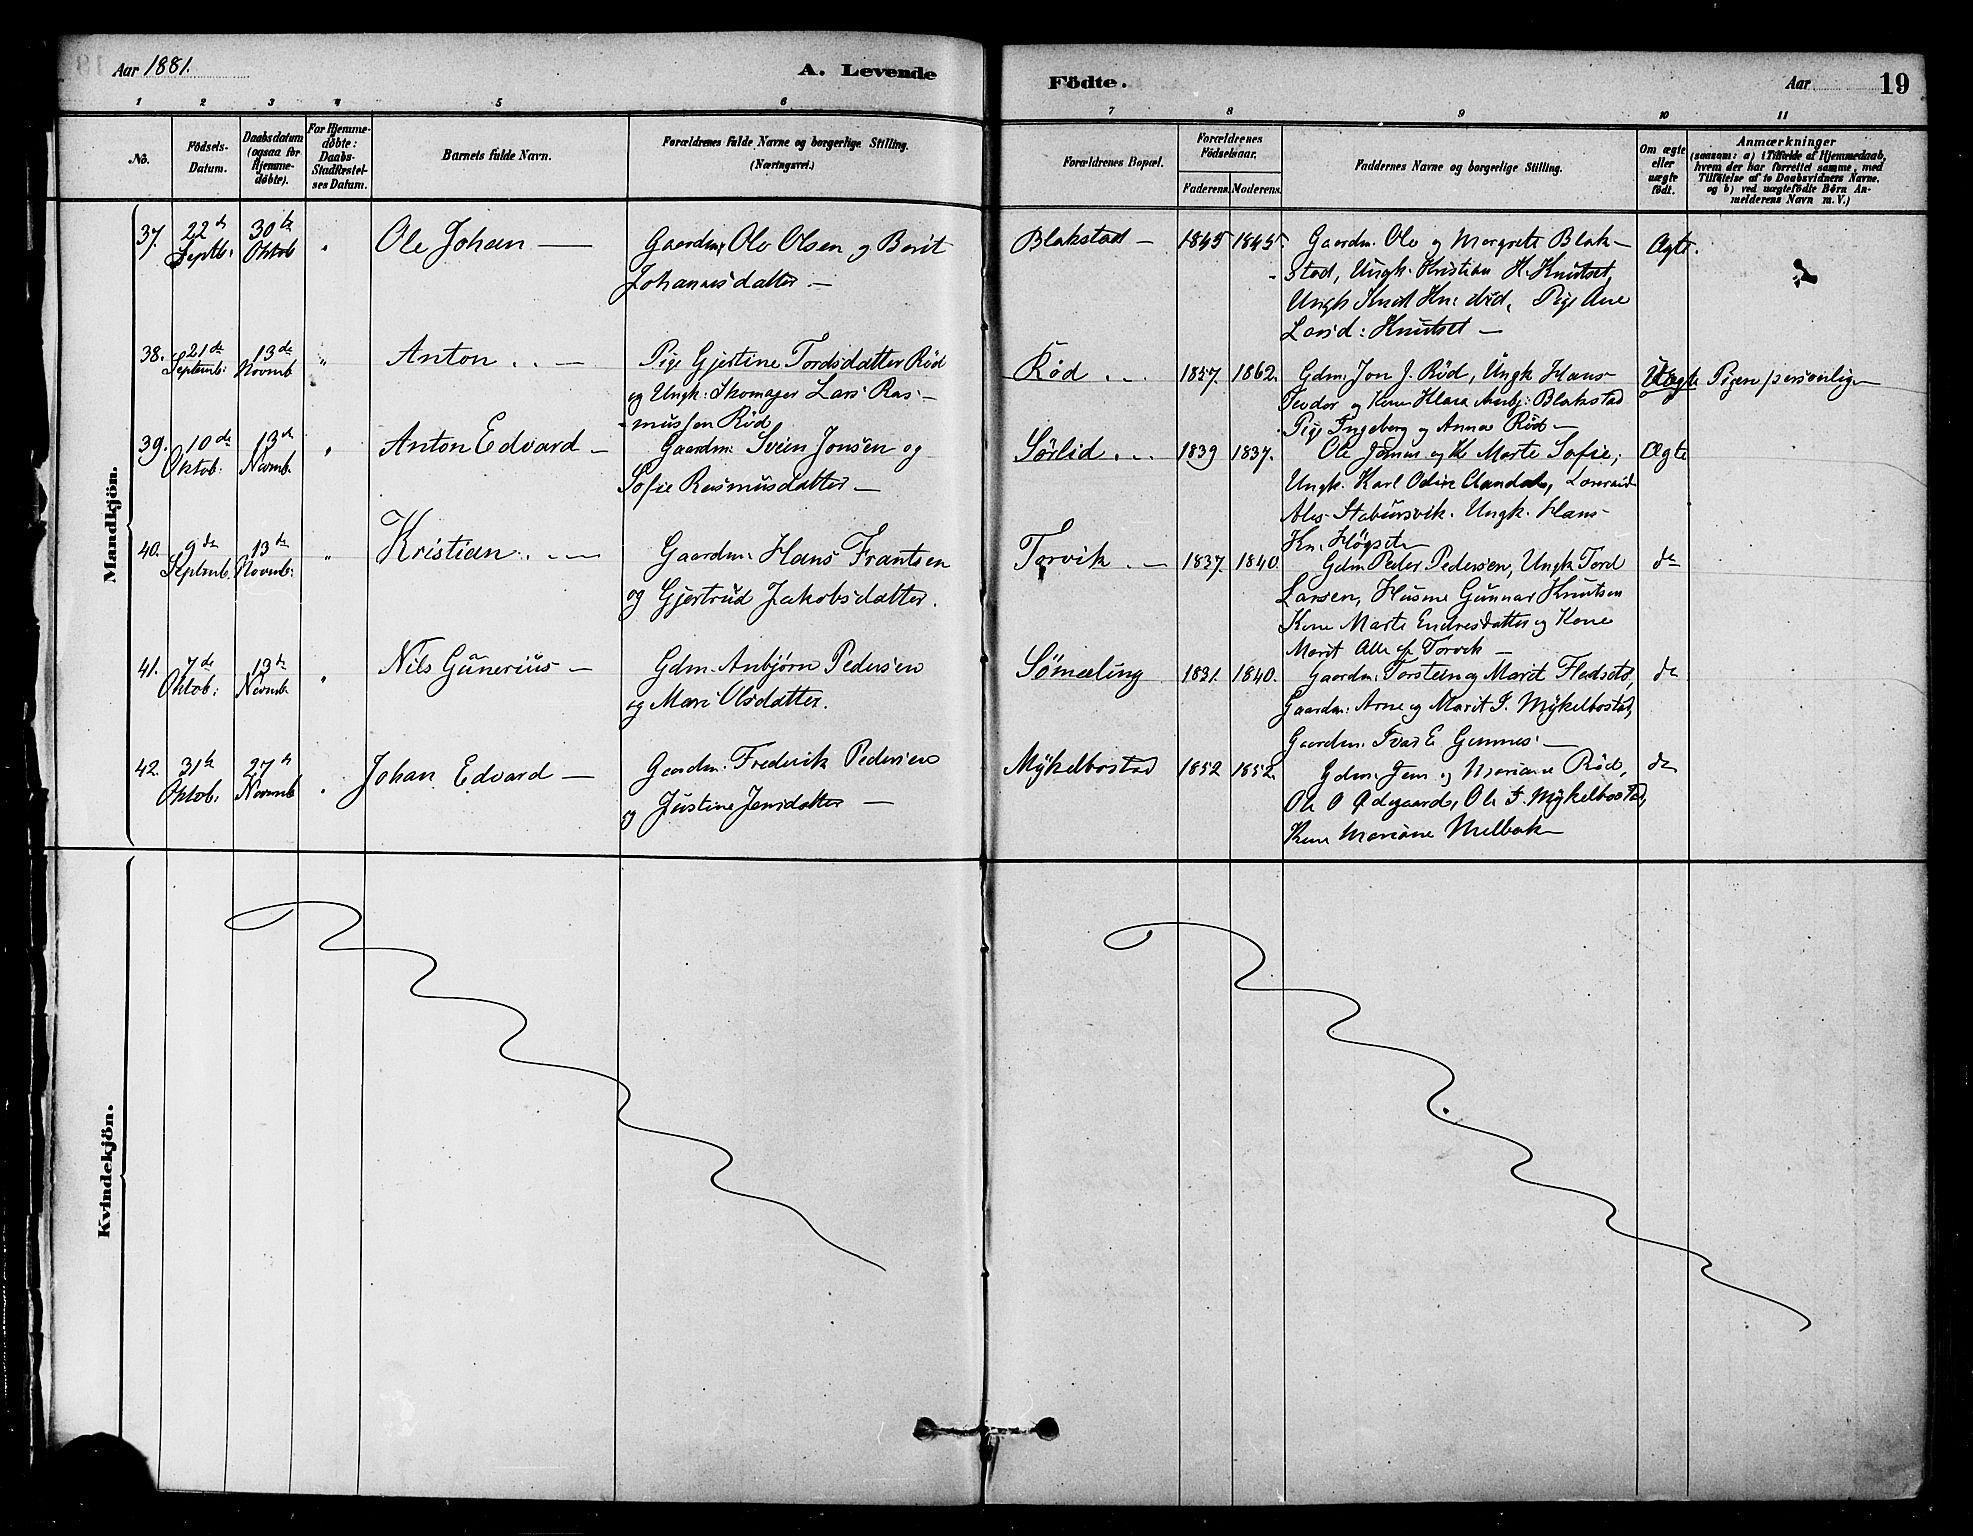 Aar 1881.
A. Levende
Födte.
Aar
19
1 2 3 4 5 6 7 8 9 10 11
No.
Födsels-
Datum.
Daabsdatum
(ogsaa for
Hjemme-
døbte).
For Hjemme-
døbte:
Daabs-
Stadfæstel-
ses Datum.
Barnets fulde Navn.
Forældrenes fulde Navne og borgerlige Stilling.
(Næringsvei.)
Forældrenes Bopæl.
Forældrenes
Födselsaar.
Faderens. Moderens.
Faddernes Navne og borgerlige Stilling.
Om ægte
eller
uægte
födt.
Anmærkninger
(saasom: a) i Tilfælde af Hjemmedaab,
hvem der har forrettet samme, med
Tilföielse af to Daabsvidners Navne.
og b) ved uægtefödte Börn An-
melderens Navn m. V.)
Mandkjön.
37. 22de Septb. 30te Oktob " Ole Johan —
Gaardm. Ole Olsen og Berit
Johannesdatter —
Blakstad — 1845 1845.
Gaardm. Ole og Margrete Blak-
stad, Ungk. Kristian K. Knutset,
Ungk Knut Kn. did, Pige Ane
Larsd: Knutset —
Ægte.
38. 21de Septemb: 13de Novmb " Anton . . —
Pige Gjertine Tordsdatter Rød
og Ungk: Skomager Lars Ras-
mussen Rød
Rød . . . 1857. 1862.
Gdm. Jon J. Rød, Ungk Hans
Teodor og Kone Klara Anbj: Blakstad
Pige Ingeberg og Anna Rød —
Uægte Pigen personlig
39. 10de Oktob: 13de Novmb. " Anton Edvard —
Gaardm: Svein Jonsen og
Sofie Rasmusdatter —
Sørlid . . . 1839 1837.
Ole Jonsen og K Marte Sofie,
Ungk. Karl Odin Aandal,
Stabursvik. Ungk. Hans
Kn. Högset
Ægte
40. 9de Septemb. 13de Novmb: " Kristian . . —
Gaardm. Hans Frantsen
og Gjertrud Jakobsdatter.
Torvik . — 1837. 1840
Gdm Peder Pedersen, Ungk Tord
Larsen, Husm Gunnar Knutsen
Kone Marte Endresdatter og Kone
Marit Alle af Torvik —
do
41. 7de Oktob: 13de Novmb " Nils Gunerius —
Gdm. Anbjørn Pedersen
og Mari Olsdatter.
Sömæling 1831. 1840.
Gaardm: Torstein og Marit Fladset,
Gaardm: Arne og Marit I. Mykelbostad,
Gaardm. Ivar E Gimnes —
do
42. 31te Oktob: 27de Novmb " Johan Edvard —
Gaardm: Frederik Pedersen
og Justine Jensdatter —
Mykelbostad 1852 1852.
Gdm. Jens og Mariane Rød,
Ole O Ødegaard, Ole I. Mykelbostad,
Kone Mariane Melbak
do
Kvindekjön.